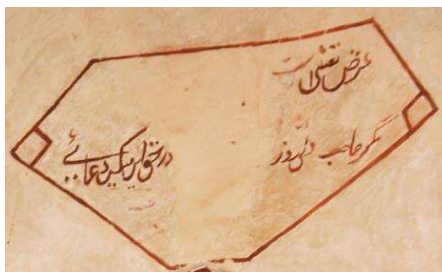 غرض نقشی است
مگر صاحب دلی روز
در حق این مسکین دعائی